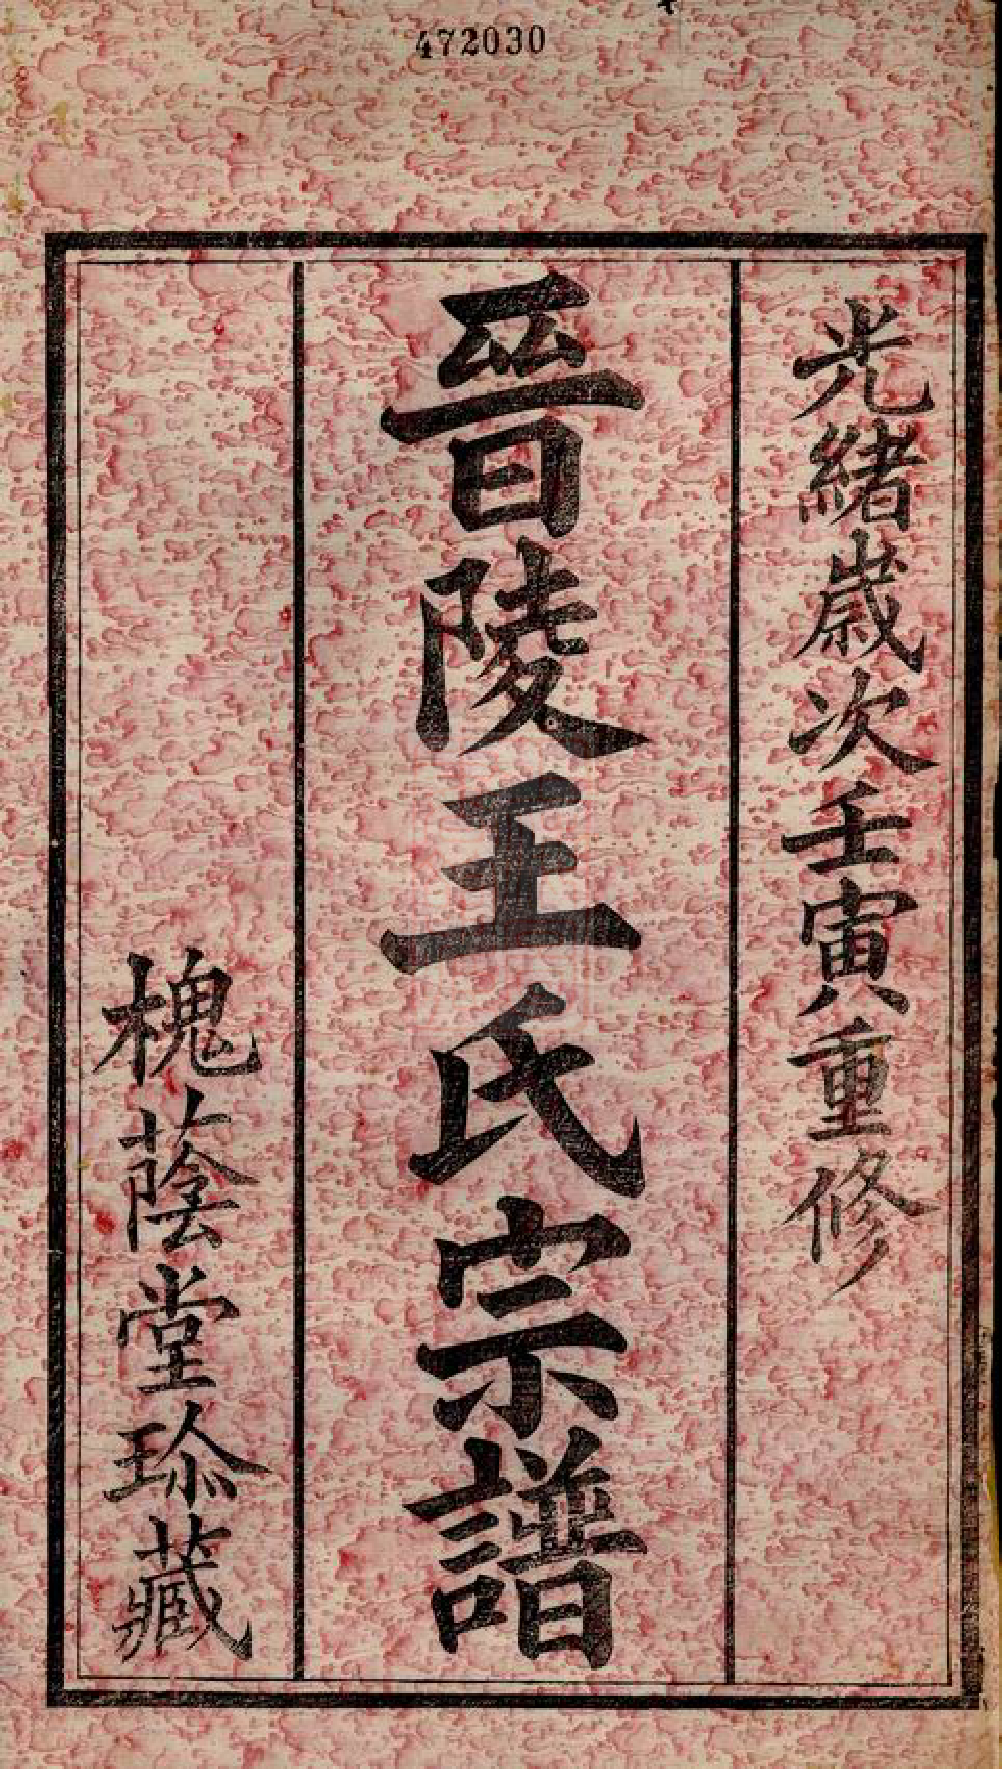 472030
光緒歲次壬寅重修
晉陵王氏宗譜
槐蔭堂珍藏